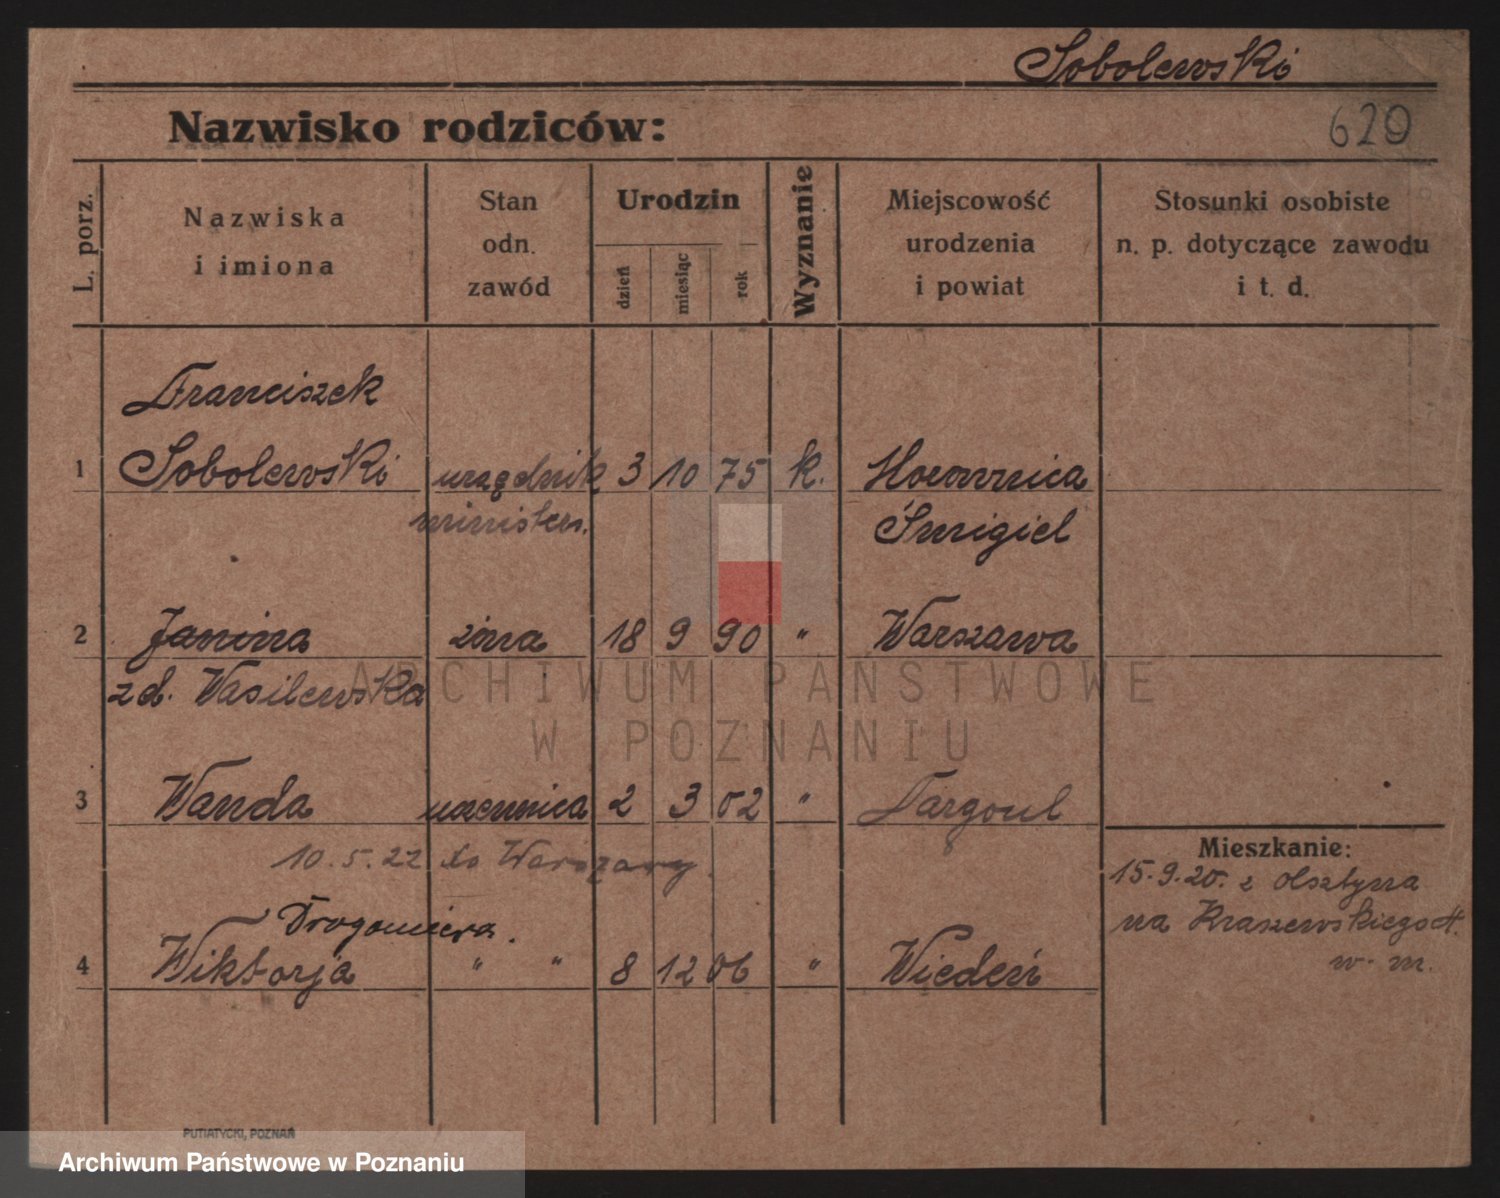 Sobolewski
Nazwisko rodziców:
620
L. porz.
Nazwiska
i imiona
Stan
odn.
zawód
Urodzin
dzień
miesiąc
rok
Wyznanie
Miejscowość
urodzenia
i powiat
Stosunki osobiste
n. p. dotyczące zawodu
i t. d.
Franciszek
1 Sobolewski urzędnik 3 10 75 k.
minister.
Śmigiel
2 Janina żona 18 9 90 " Warszawa
zd. Wasilewska
ARCHIWUM PAŃSTWOWE
W POZNANIU
3 Wanda uczennica 2 3 02 "
Mieszkanie:
10.5.22 do Warszawy.
15.9.20. z Olsztyna
na Kraszewskiego
w. m.
4 Wiktorja " " 8 12 06 " Wiedeń
PUTIATYCKI, POZNAŃ
Archiwum Państwowe w Poznaniu